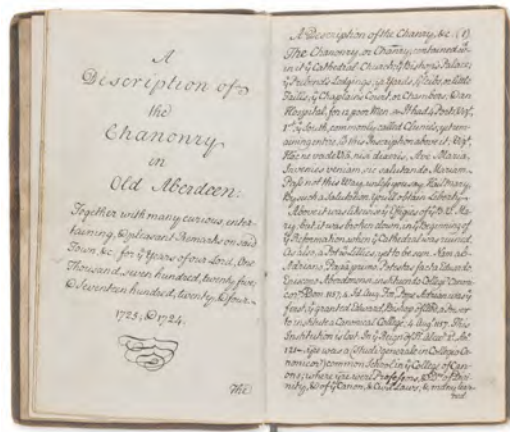 A
Description of
the
Chanonry
in
Old Aberdeen:
Together with many curious, enter-
taining, & pleasant Remarks on said
Town, &c: for ye Years of our Lord, One
Thousand, seven hundred, twenty five;
& Seventeen hundred, twenty, & four.
1725, & 1724.
The
A Description of the Chanry, &c. (1)
The Chanonry, or Chanry, contained w-
in it ye Cathedral Church, ye Bishop's Palace,
ye Prebends Lodgings,
ye Chaplains Court, or Chambers, & an
Hospital, for 12 poor Men. It had 4 Ports, viz.
1st ye South, commonly called Cluny's, yet rem-
aining entire, this Inscription above it; viz.
Hac ne vade Via, nisi dixeris, Ave Maria.
Invenies veniam, sic salutando Mariam.
Pass not this Way, unless you say, Hail Mary,
By such a Salutation, you'll obtain Liberty.
Above it was likewise ye Effigies of ye B. V. Ma-
ry, but it was broken down, in ye Beginning of
ye Reformation, when ye Cathedral was ruined.
As also, a Pot w Lillies, yet to be seen. Nam ab
Adriano, Papa primo, Potestas facta Eduardo
Episcopo Abredonensi, instituendo Colleg: Canon-
1157, 4. Aug. For Pope Adrian was ye
first, yt granted Edward, Bishop of Abd. Power
to institute a Canonical College, 4 Aug: 1157. This
Institution is lost. In ye Reign of
was a (Studium generale in Collegio Ca-
nonicorum) common School in ye College of Can-
ons; where were Professors, & of Divi-
nity, & of ye Canon, & Civil Laws, & many